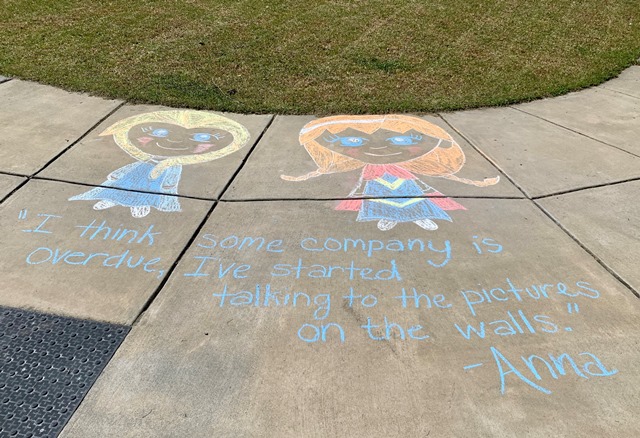 "I think some company is
overdue, I've started
talking to the pictures
on the walls."
-Anna